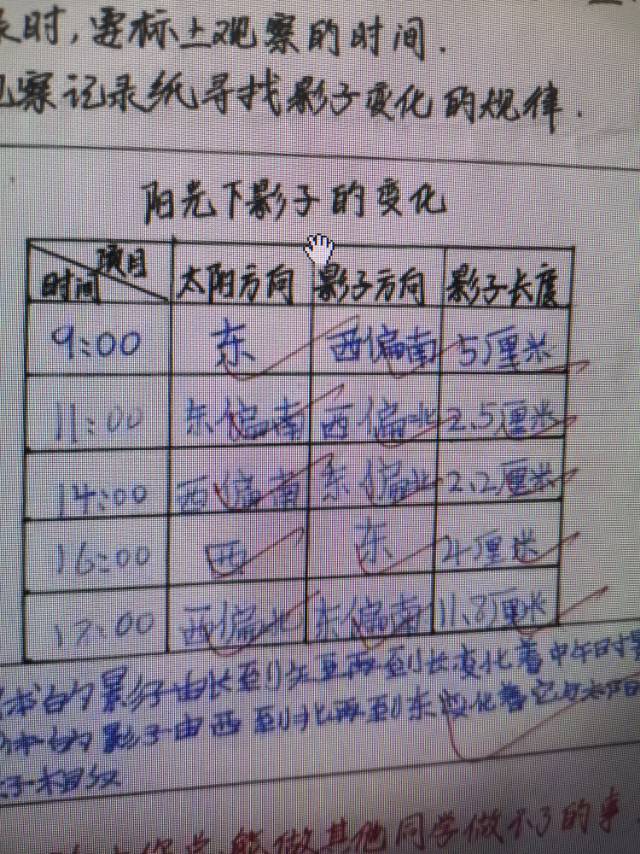 时,要标上观察的时间.
观察记录纸寻找影子变化的规律.
阳光下影子的变化
项目
时间 太阳方向 影子方向 影子长度
9:00 东 西偏南 5厘米
11:00 东偏南 西偏北 2.5厘米
14:00 西偏南 东偏北 2.2厘米
16:00 西 东 4厘米
17:00 西偏北 东偏南 11.8厘米
的影子由长到短再到长变化着中午时
的影子由西到北再到东变化着它与太阳
相反
能做其他同学做不了的事